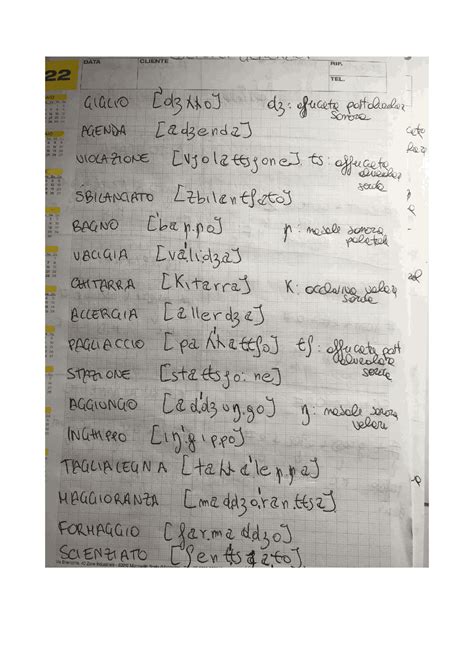 DATA CLIENTE RIF.
TEL.
22
GIGLIO ['dʒʎʎo] dʒ: affricata postalveolare
sonora
AGENDA [adʒenda]
VIOLAZIONE [vjolattsjone] ts: affricata
alveolare
sorda
SBILANCIATO [zbilantʃato]
BAGNO ['baɲ.ɲo] ɲ: nasale sonora
palatale
VALIGIA [validʒa]
CHITARRA [Kitarra] K: occlusiva velare
sorda
ALLERGIA [allerdʒa]
PAGLIACCIO [paʎʎattʃo] tʃ: affricata post
alveolare
sorda
STAZIONE [stattsjo:ne]
AGGIUNGO [addʒuŋ.go] ŋ: nasale sonora
velare
INGHIPPO [iŋ'gippo]
TAGLIALEGNA [taʎʎa'leɲɲa]
MAGGIORANZA [maddʒo'ran.ttsa]
FORMAGGIO [for.maddʒo]
SCIENZIATO [ʃenttsja.to]